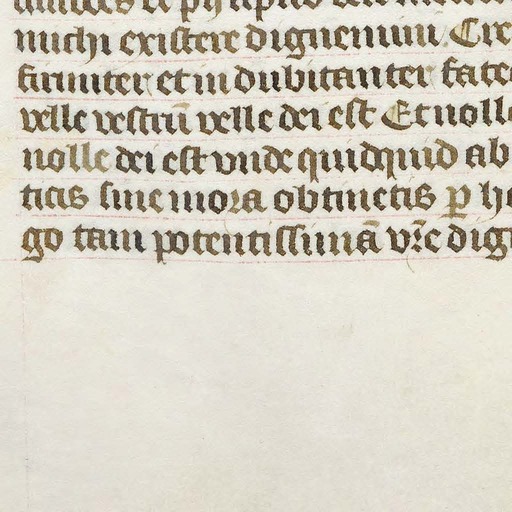 michi existere dignemini. Cre
firmiter et indubitanter fate
velle vestrū velle dei est Et noll
nolle dei est vnde quidquid ab
titis sine mora obtinetis ꝑ h
go tam potentissimā vr̄e dig